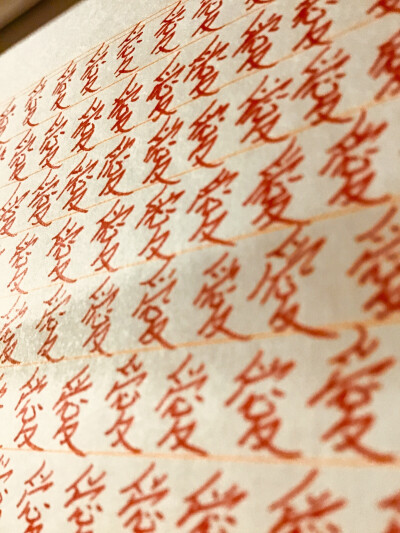 愛愛愛愛愛愛愛
愛愛愛愛愛愛愛愛
愛愛愛愛愛愛愛愛愛
愛愛愛愛愛愛愛
愛愛愛愛愛愛愛
愛愛愛愛愛愛
愛愛愛愛愛愛